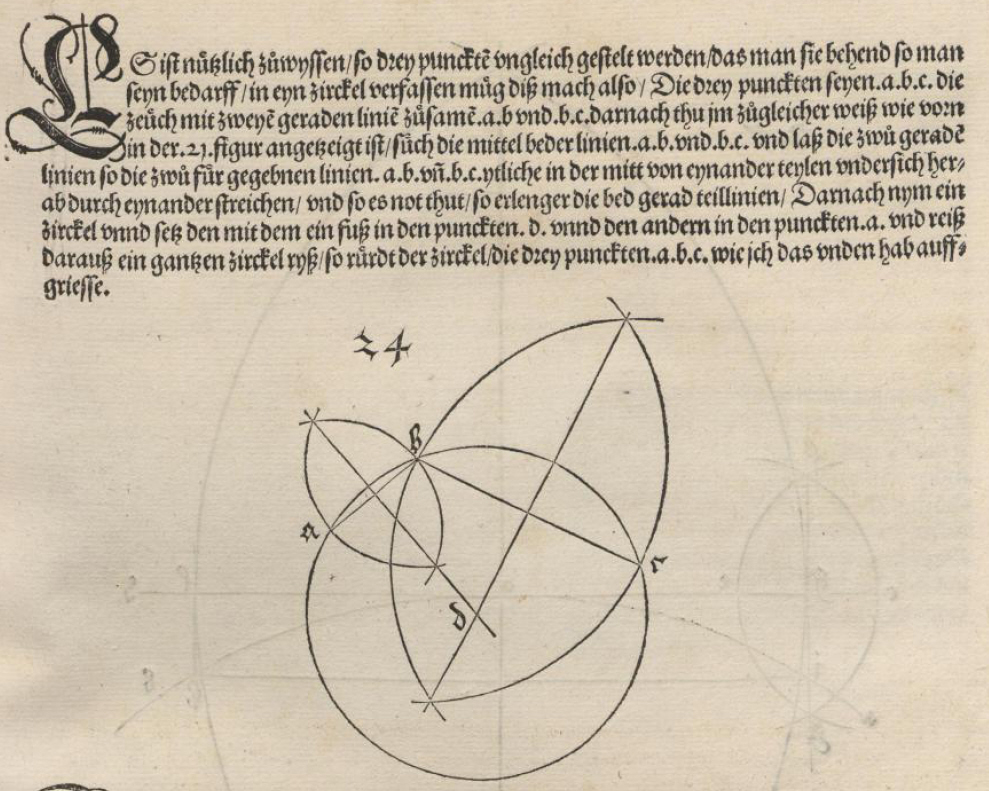 ES ist nützlich zůwyssen/so drey puncktē vngleich gestelt werden/das man sie behend so man
seyn bedarff/in eyn zirckel verfassen müg diß mach also/ Die drey punckten seyen.a.b.c. die
zeüch mit zweyē geraden liniē zůsamē.a.b vnd.b.c.darnach thu jm zůgleicher weiß wie vorn
in der.21.figur angetzeigt ist/sůch die mittel beder linien.a.b.vnd.b.c. vnd laß die zwů geradē
linien so die zwů für gegebnen linien. a.b.vn̄.b.c.ytliche in der mitt von eynander teylen vndersich her⸗
ab durch eynander streichen/ vnd so es not thut/so erlenger die bed gerad teillinien/ Darnach nym ein
zirckel vnnd setz den mit dem ein fuß in den punckten. d. vnnd den andern in den punckten.a. vnd reiß
darauß ein gantzen zirckel ryß/so rürdt der zirckel/die drey punckten.a.b.c. wie jch das vnden hab auff⸗
griesse.
24
b
a
c
d